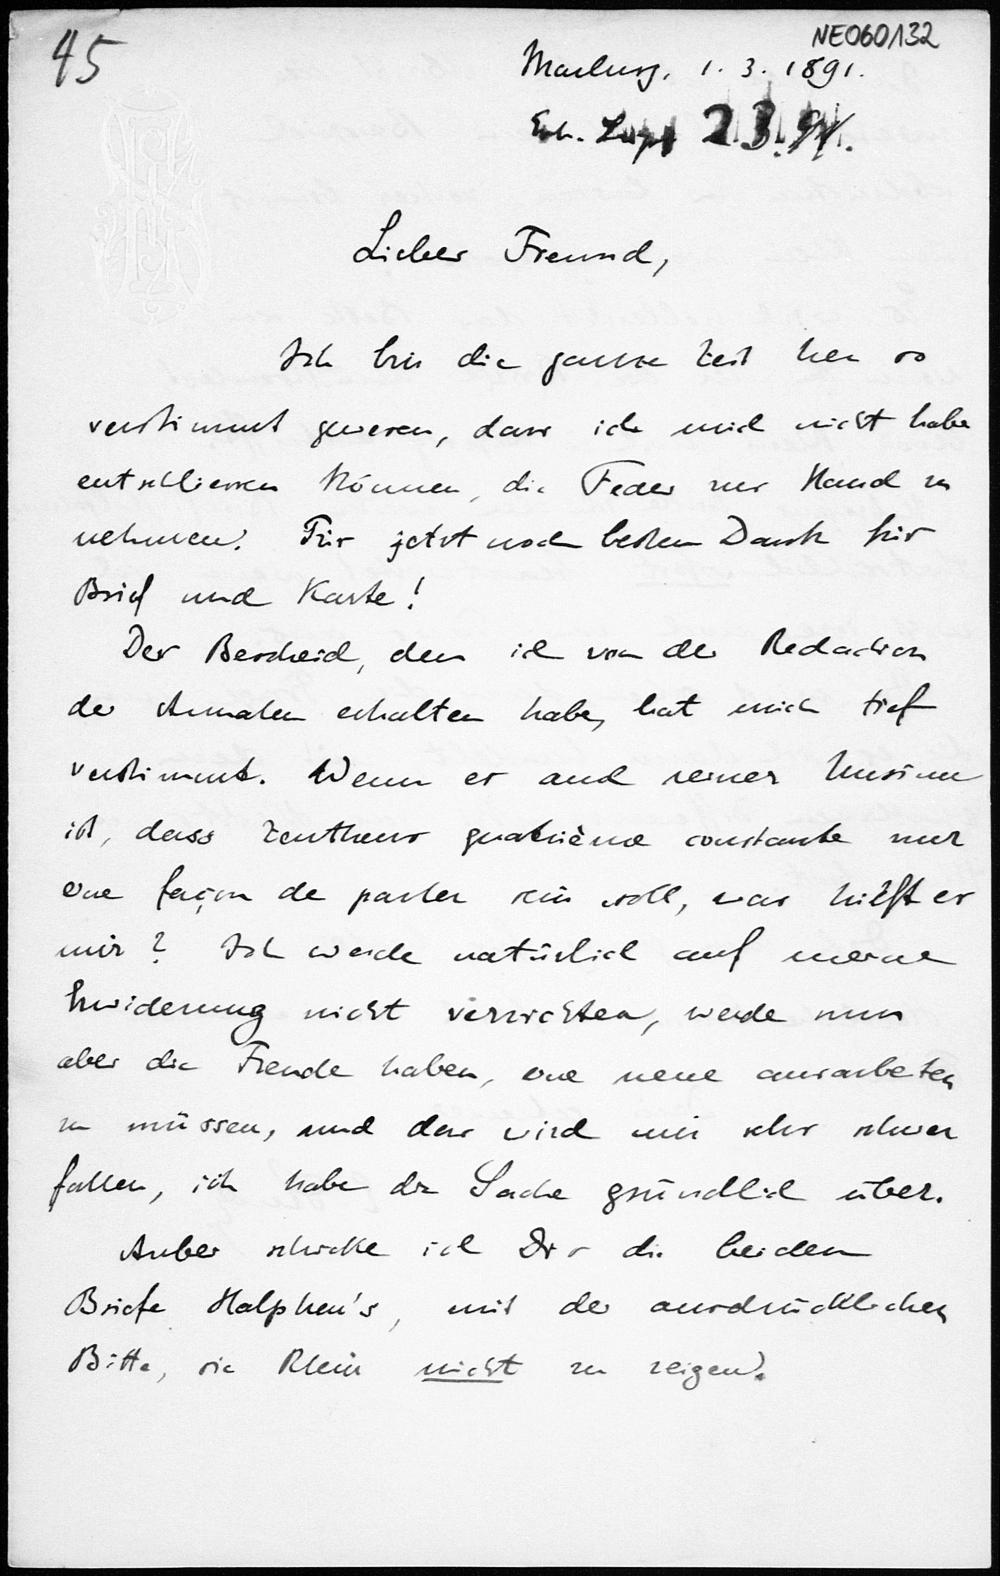 45
NE060132
Marburg, 1. 3. 1891.
Erh. Lpzg 2.3.91.
Lieber Freund,
Ich bin die ganze Zeit her so
verstimmt gewesen, dass ich mich nicht habe
entschliessen können, die Feder zur Hand zu
nehmen. Für jetzt noch besten Dank für
Brief und Karte!
Der Bescheid, den ich von der Redaction
der Annalen erhalten habe, hat mich tief
verstimmt. Wenn es auch reiner Unsinn
ist, dass Zeuthens quatrième constante nur
eine façon de parler sein soll, was hilft es
mir? Ich werde natürlich auf meine
Erwiderung nicht verzichten, werde nun
aber die Freude haben, eine neue ausarbeiten
zu müssen, und das wird mir sehr schwer
fallen, ich habe die Sache gründlich über.
Anbei schicke ich Dir die beiden
Briefe Halphen's, mit der ausdrücklichen
Bitte, sie Klein nicht zu zeigen.